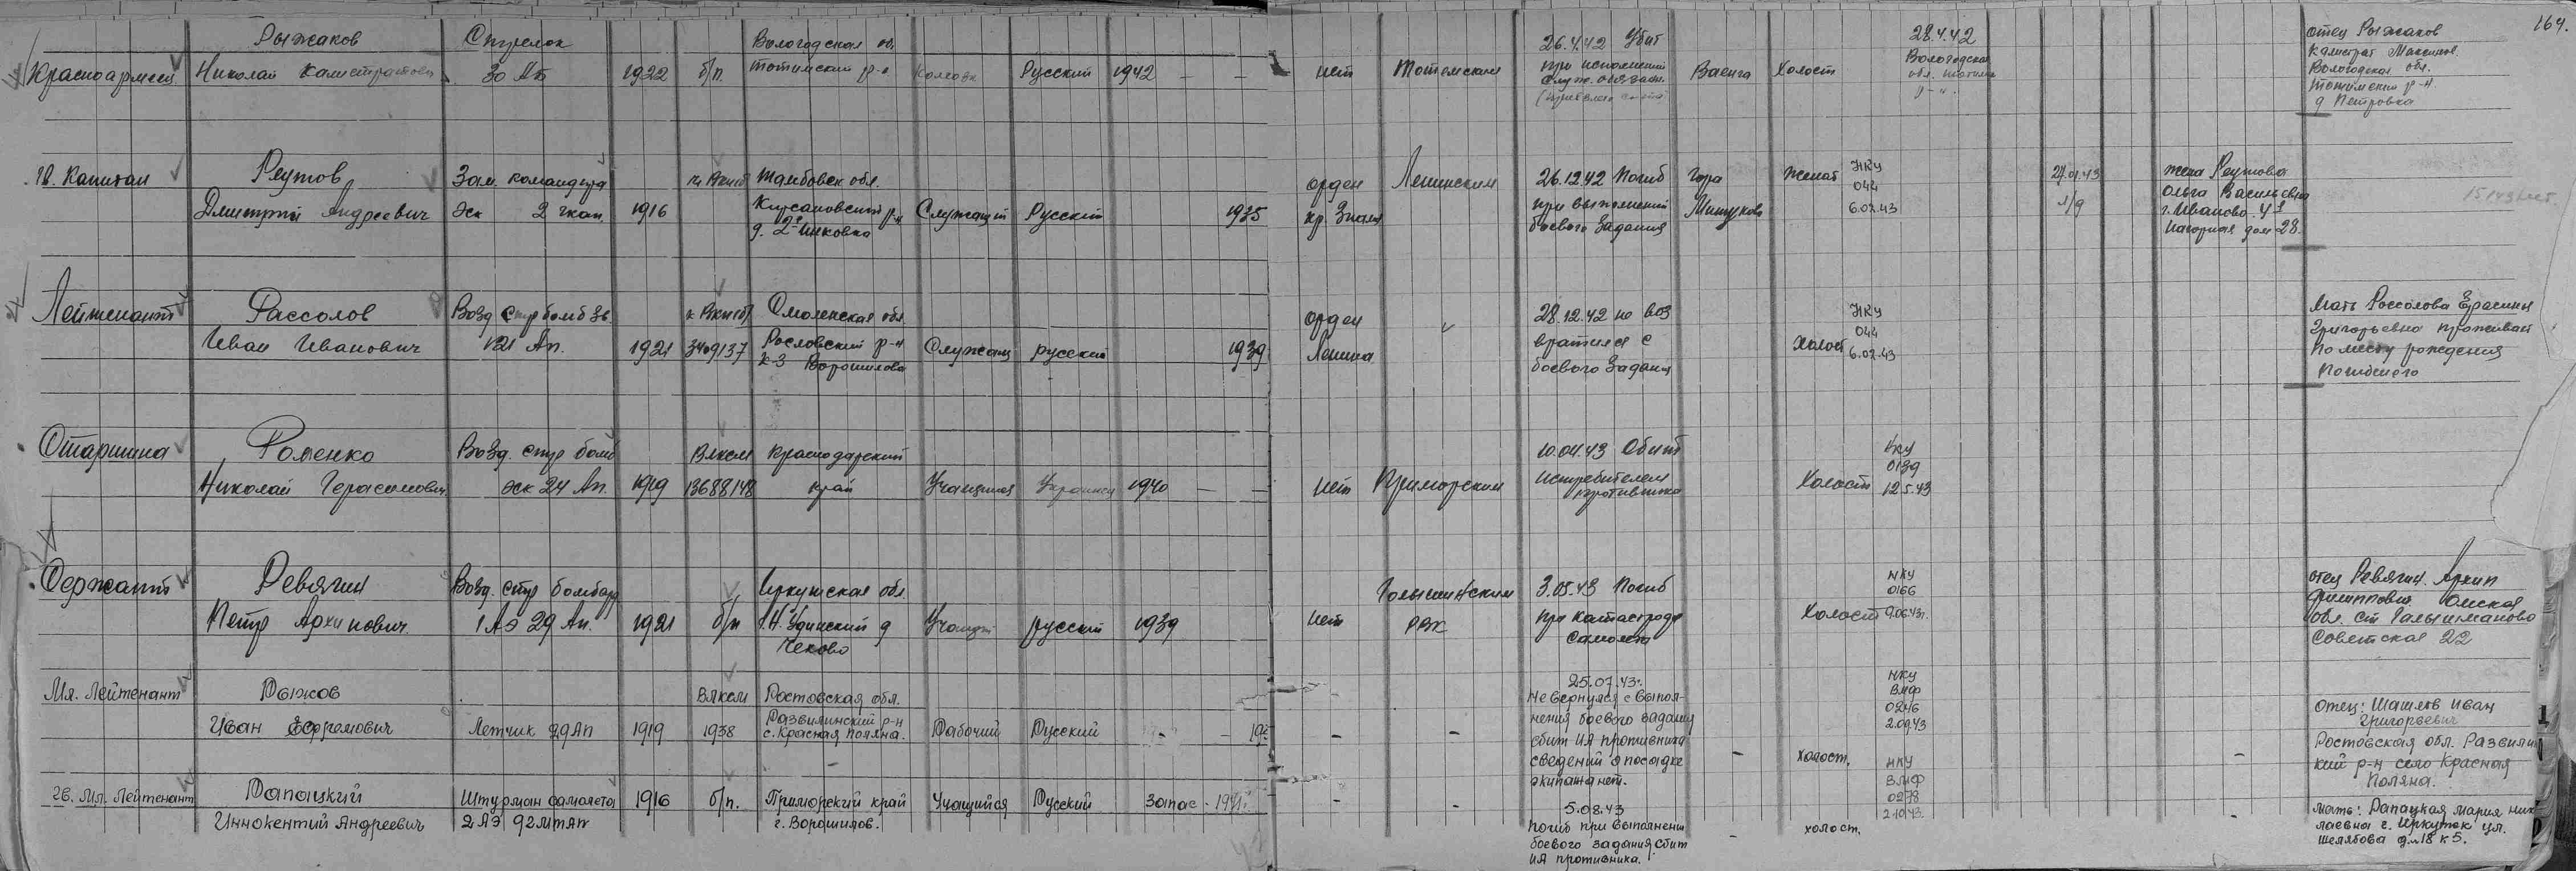 164.
Рыжаков Стрелок Вологодская об. 26.4.42 Убит 28.4.42 отец Рыжаков
Красноармеец Николай Калистратович 30 АП 1922 б/п. Тотемский р-н Колхозн Русский 1942 — — нет Тотемским при исполнении Ваенга Холост Вологодская Калистрат Максимов.
служ. обязан. обл. Тотемск Вологодская обл.
р-н. Тотемский р-н.
д Петровка
Гв. Капитан Реутов Зам. командира чл ВКП(б) Тамбовск обл. орден Ленинским 26.12.42 Погиб Гора Женат НКУ 27.01.43 жена Реутова
044 л/д Ольга Васильевна
Дмитрий Андреевич эск 2 гкап. 1916 Кирсановский р-н Служащий Русский 1935 кр. Знамя при выполнении Мишуково 6.02.43 г. Иваново
д. 2-Иновка боевого задания Нагорная дом 28.
Лейтенант Рассолов Возд Стр бомб Зв. к ВКП(б) Смоленская обл. орден 28.12.42 не воз НКУ Мать Рассолова
044 Григорьевна проживает
Иван Иванович 121 Ап. 1921 3409137 Рославский р-н Служащ русский 1939 Ленина вратился с Холост 6.02.43 по месту рождения
к-з Ворошилова боевого задания погибшего
Старшина Роменко Возд. стр бомб ВЛКСМ Краснодарский 10.04.43 Сбит НКУ
0139
Николай Герасимович эск 24 Ап. 1919 13688148 край Учащийся Украинец 1940 — — нет Приморским истребителем Холост 12.5.43
противника
Сержант Ревягин Возд. стр бомбард Иркутская обл. Голышмановским 3.05.43 Погиб НКУ отец Ревягин. Архип
0166 Филиппович Омская
Петр Архипович. 1 АЭ 29 Ап. 1921 б/п Н-Удинский д Учащий русский 1939 нет РВК при катастрофе Холост 9.06.43г. обл. ст Голышманово
Чеково самолета Советская 22
Мл. Лейтенант Рыжов ВЛКСМ Ростовская обл. 25.07.43г. НКУ
Не вернулся с выпол- ВМФ
Иван Ефремович Летчик 29 Ап 1919 1938 Развилинский р-н Рабочий Русский - - - - нения боевого задания 0246 Отец: Шашлов Иван
с. Красная Поляна. сбит ИА противника 2.09.43 Григорьевич
сведений о посадке - холост. Ростовская обл. Развилин
экипажа нет. - кий р-н село Красная
Поляна.
Гв. Мл. Лейтенант Рапацкий Штурман самолета 1916 б/п. Приморский край Учащийся Русский Запас - 1941г. - - 5.08.43 НКУ
ВМФ
0278
2.10.43
Иннокентий Андреевич 2 АЭ 92МТАП г. Ворошилов. Погиб при выполнени - холост. - мать: Рапацкая Мария Ник
боевого задания сбит лаевна г. Иркутск ул.
ИА противника. Желябова д.№18 к 5.